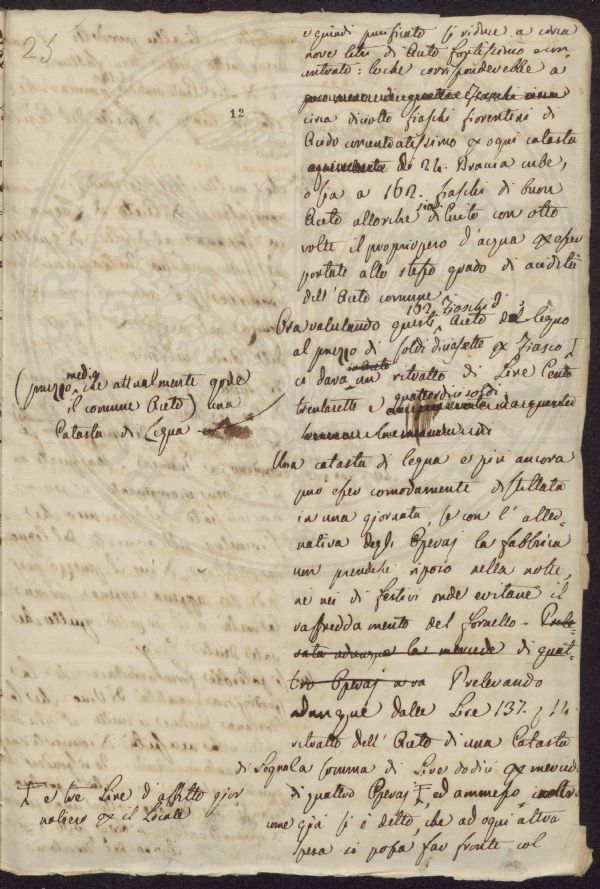 25
12
e quindi purificato si riduce a circa
nove libre di Aceto fortissimo e con-
centrato: loche corrisponderebbe a
circa diciotto fiaschi fiorentini di
Acido concentratissimo per ogni catasta
di 24. Braccia cube,
o sia a 162. fiaschi di buon
Aceto allorche sia diluito con otto
volte il proprio peso d'acqua per esser
portato allo stesso grado di acidità
dell'Aceto comune.
Ora valutando questi 162. Fiaschi d'Aceto di legno
al prezzo di soldi diciasette per Fiasco
(prezzo medio che attualmente gode
il comune Aceto) una
Catasta di Legna
ci darà in Aceto un ritratto di Lire Cento
trentasette e quattordici soldi
Una catasta di legna e più ancora
può esser comodamente distillata
in una giornata, se con l'alter-
nativa degli Operaj la fabbrica
non prendesse riposo nella notte,
ne nei dì festivi onde evitare il
raffreddamento del fornello - Prele-
sata adunque la mercede di quat-
tro Operaj ora Prelevando
adunque dalle Lire 137. 14.
ritratto dell'Aceto di una Catasta
di Legna la somma di Lire dodici per mercede
di quattro Operaj, ed ammesso inoltre
e tre Lire d'affitto gior
naliero per il Locale
come già si è detto, che ad ogni altra
spesa si possa far fronte col